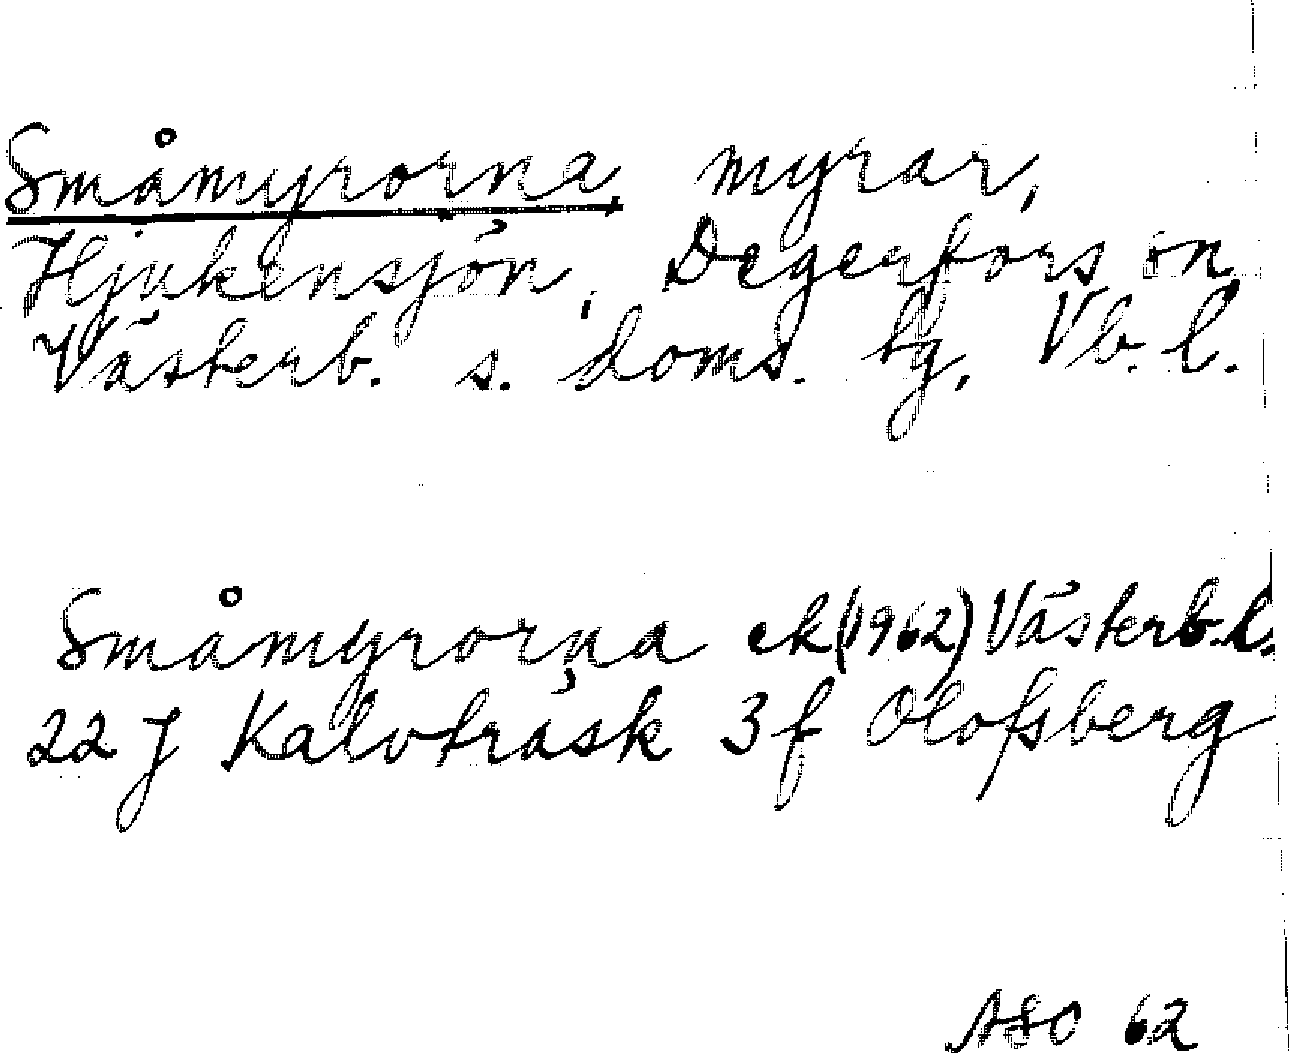 Småmyrorna myrar,
Hjukensjön, Degerfors sn
Västerb. s. doms. tg, Vb. l.
Småmyrorna ek (1962) Västerb. l.
22 J Kalvträsk 3 f Olofsberg
ASO 62